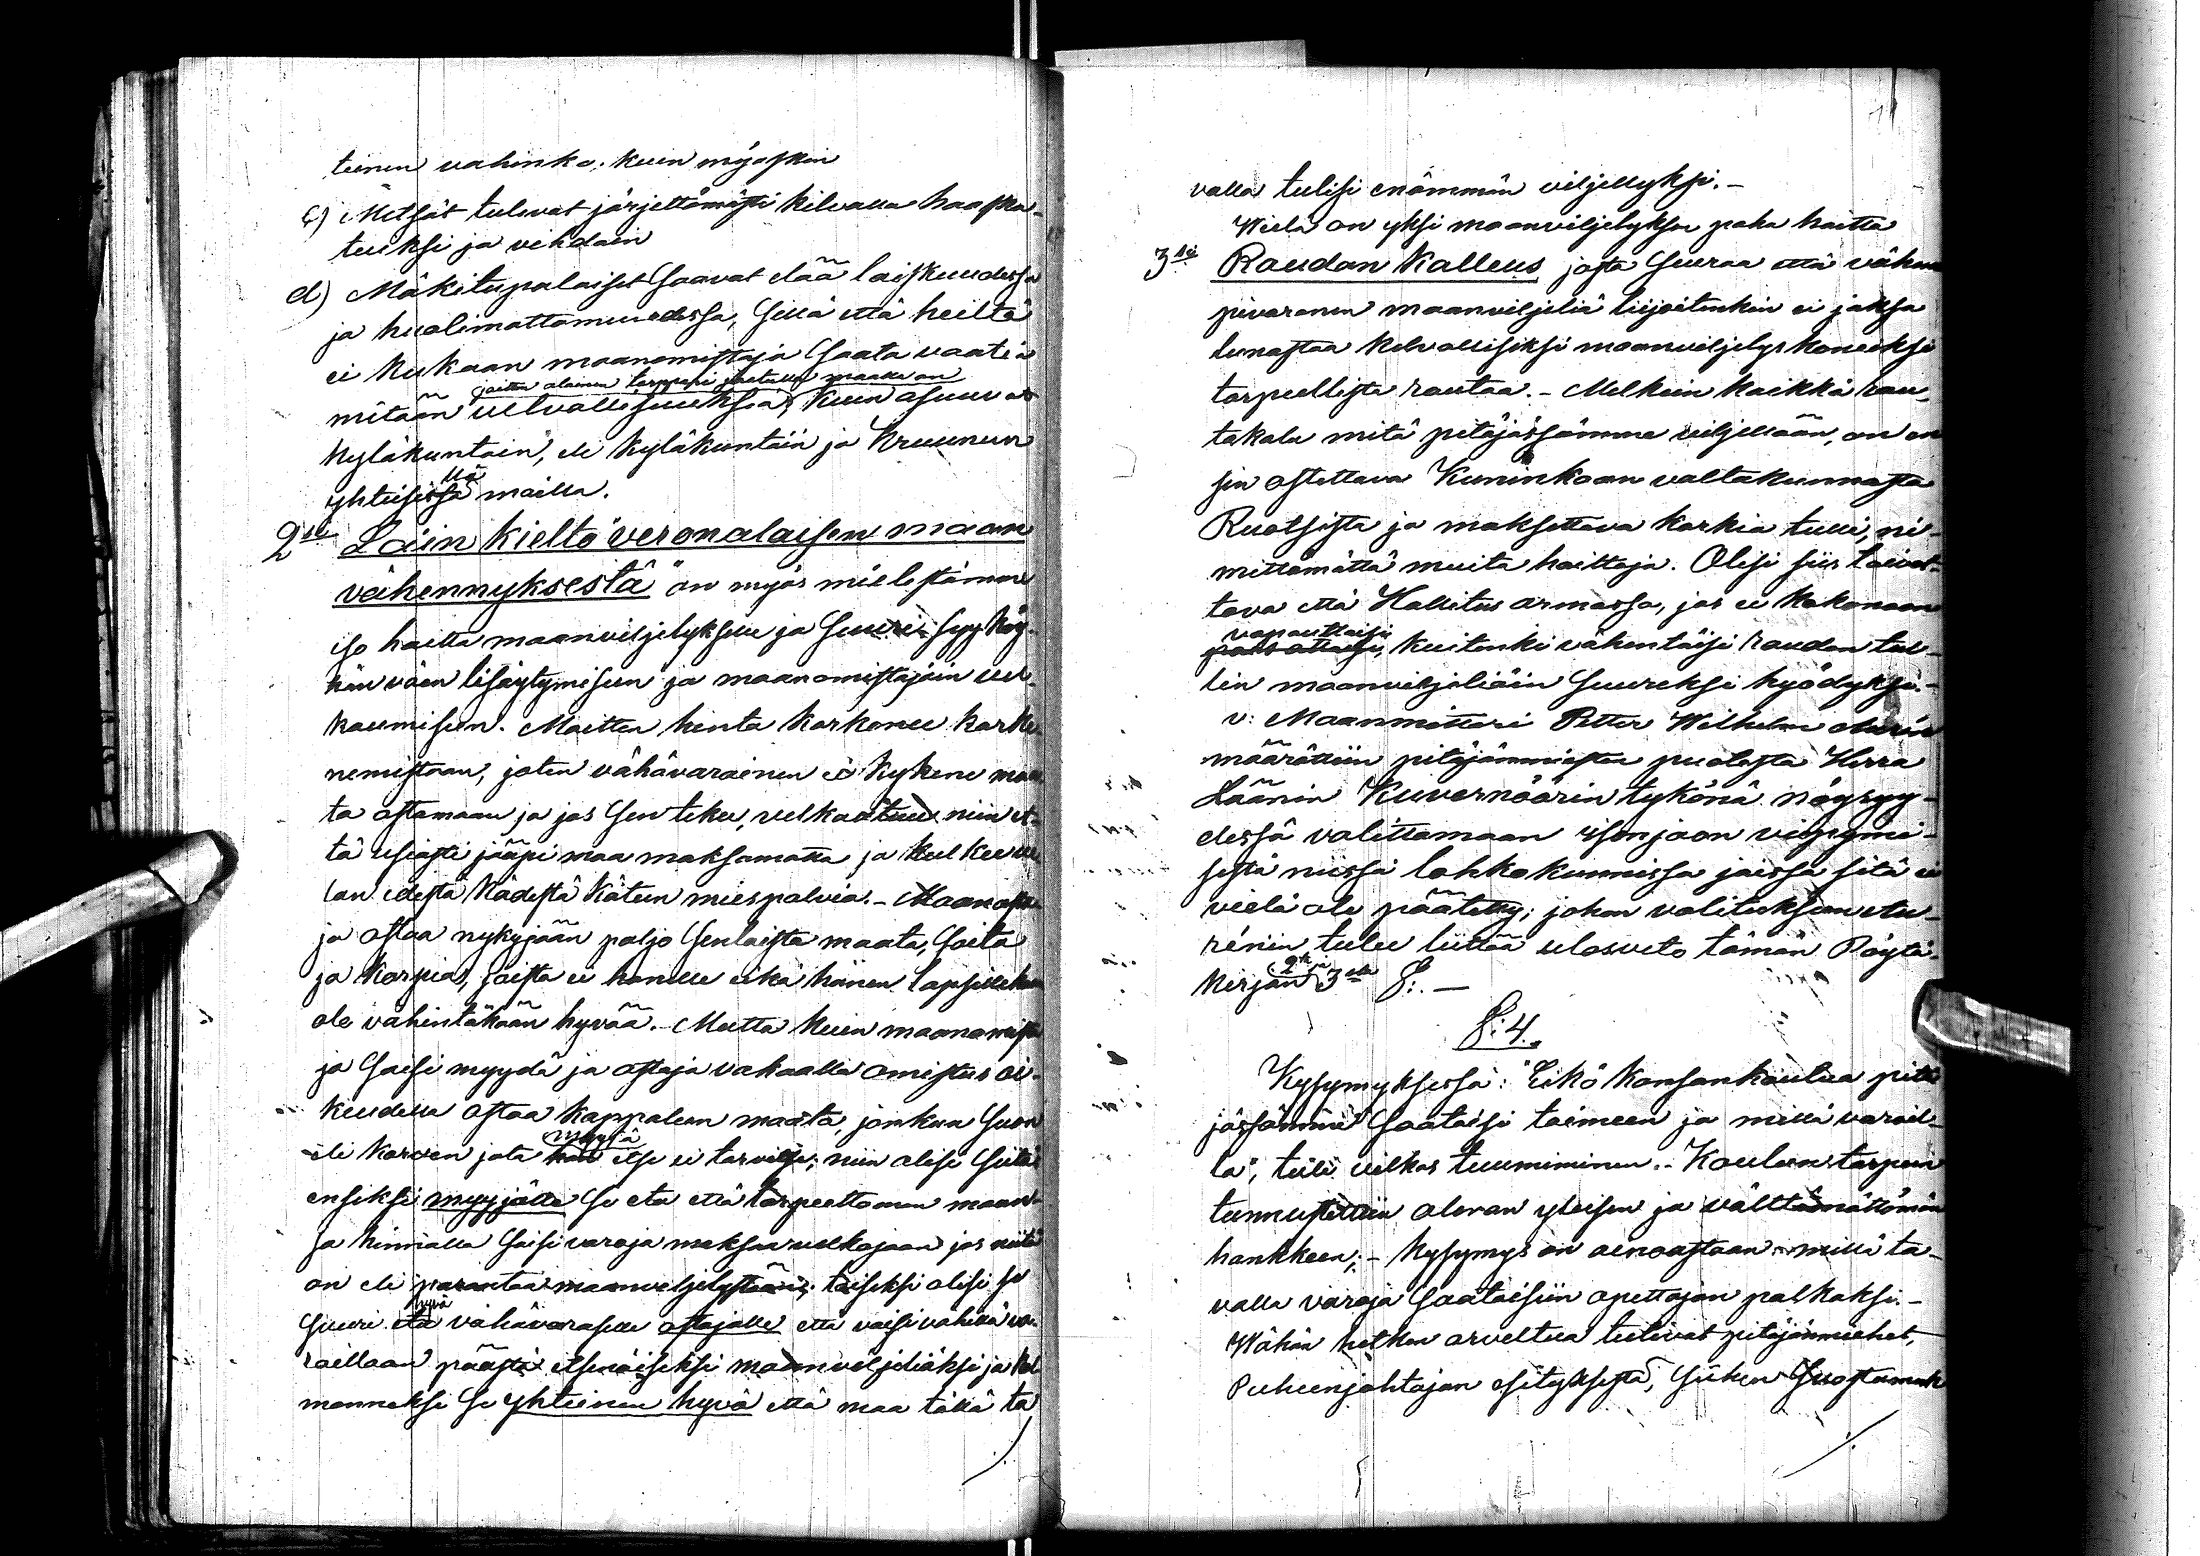 teinen vahinko; kuin myöskin
c) Metsät tulevat järjettömästi kilvalla haaska-
tuiksi ja vihdoin
d) Mäkitupalaiset saavat elää laiskuudessa
ja huolimattomuudessa, sillä että heiltä
ei kukaan maanomistaja saata vaatia
joitten alainen torppari jaetulla maalla on
mitään velvollisuuksia, kuin asuvat
kyläkuntain, eli kyläkuntain ja kruunun
yhteisissä llä mailla.
2si Lain kielto veronalaisen maan
vähennyksestä on myös mielestämme
iso haitta maanviljelykselle ja suurin syy köy-
hän väen lisäytymiseen ja maanomistajain vel-
kaumiseen. Maitten hinta korkonee korke-
nemistaan, joten vähävarainen ei kykene maa-
ta ostamaan ja jos sen tekee, velkaatuu niin et-
tä usiasti jääpi maa maksamatta ja kulkee velan
edestä kädestä käteen miespolvia. - Maanosta-
ja ostaa nykyjään paljo senlaista maata, soita
ja korpia, joista ei hänelle eikä hänen lapsillekaan
ole vähintäkään hyvää. - Mutta kuin maanomista-
ja saisi myydä ja ostaja vakaalla omistus oi-
keudella ostaa kappaleen maata, jonkun suon
eli korven jota myyjä hän itse ei tarvitse; niin olisi siitä
ensiksi myyjälle se etu että tarpeettoman maan-
sa hinnalla saisi varoja maksaa velkojaan jos niitä
on eli parantaa maanviljelystään; toiseksi olisi se
suuri etu hyvä vähävaraselle ostajalle että voisi vähillä va-
roillaan päästä itsenäiseksi maanviljeliäksi ja kol-
manneksi se yhteinen hyvä että maa tällä ta
valla tulisi enämmän viljellyksi. -
Wielä on yksi maanviljelyksen paha haitta
3si Raudan kalleus josta seuraa että vähem-
pivaranen maanviljeliä liijoitenkin ei jaksa
lunastaa kelvollisiksi maanviljelyskoneiksi
tarpeellista rautaa. - Melkein kaikki rau-
takalu mitä pitäjässämme viljellään, on en
sin ostettava Kuninkaan valtakunnasta
Ruotsista ja maksettava korkia tulli, ni-
mittämättä muita haittoja. Olisi siis toivot-
tava että Hallitus armossa, jos ei kokonaan
vapauttaisi, kuitenki vähentäisi raudan tul-
lin maanviljeliäin suureksi hyödyksi. -
v: Maanmittari Petter Wilhelm Aurén
määrättiin pitäjänmiesten puolesta Herra
Läänin Kuvernöörin tykönä nöyryy-
dessä valittamaan isonjaon viipymi-
sestä niissä lohkokunnissa joissa sitä ei
vielä ole päätetty; johon valitukseen Au-
rénin tulee liittää ulosveto tämän Pöytä-
kirjan 2 ja 3 §:. -
§: 4.
Kysymyksessä: "Eikö kansankoulua pitä
jässämme saataisi toimeen ja millä varoil-
la", tuli vilkas tuumiminen. - Koulun tarpeen
tunnustettiin olevan yleisen ja välttämättömän
hankkeen; - kysymys on ainoastaan millä ta-
valla varoja saataisiin opettajan palkaksi. -
Wähän hetken arveltua tulivat pitäjänmiehet,
Puheenjohtajan esityksestä, siihen suostumuk